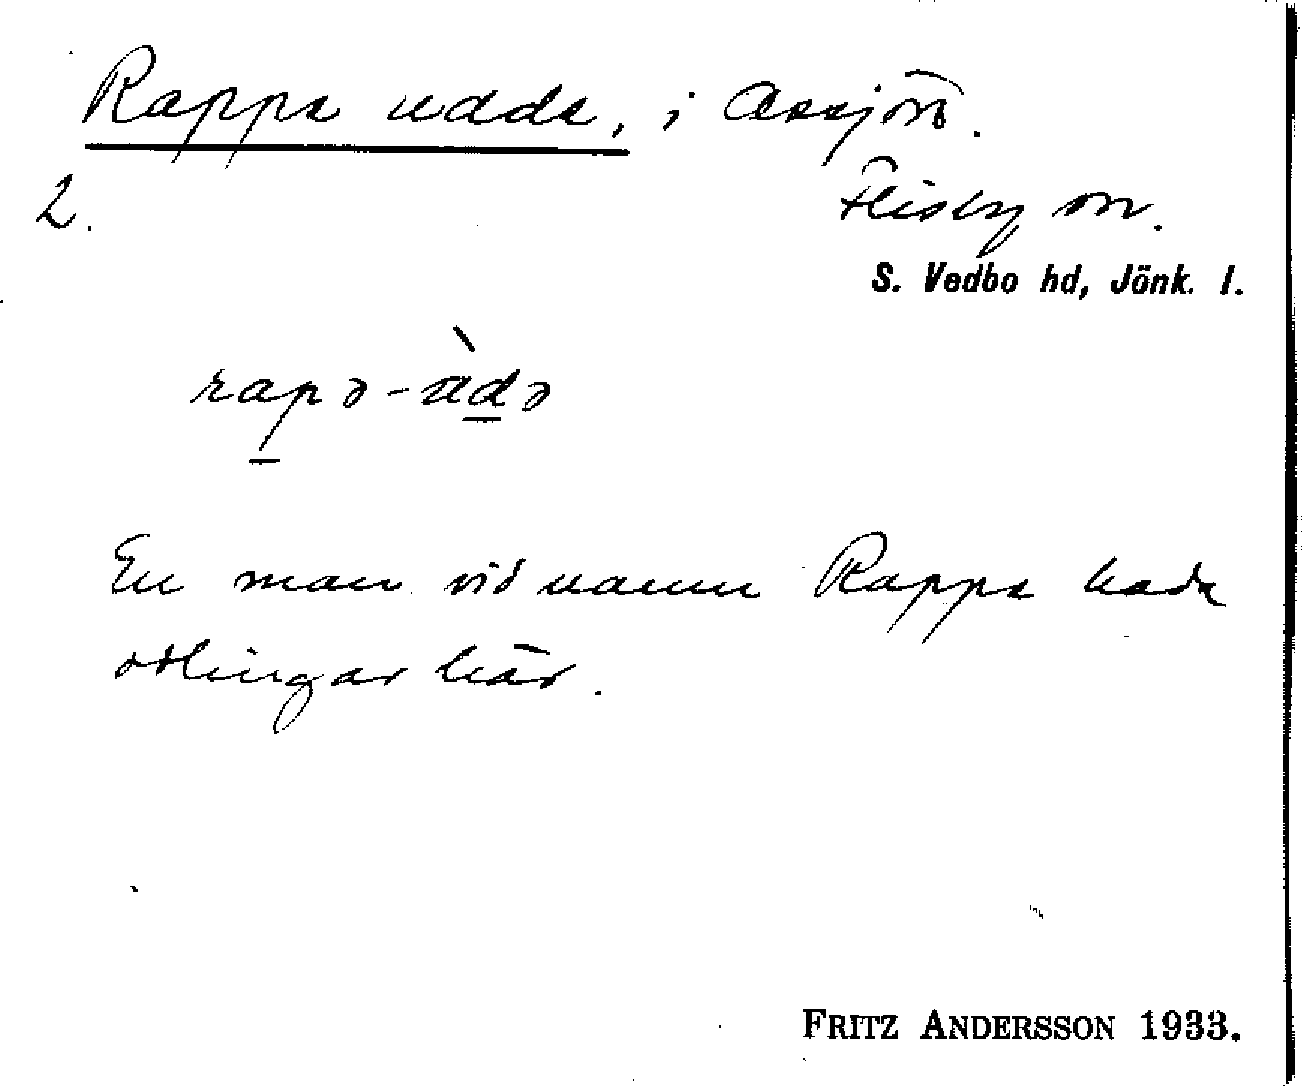 Rappe udde, i Assjön.
2.
Flisby sn.
S. Vedbo hd, Jönk. l.
rapə-ùdə
En man vid namn Rappe hade
odlingar här.
FRITZ ANDERSSON 1933.